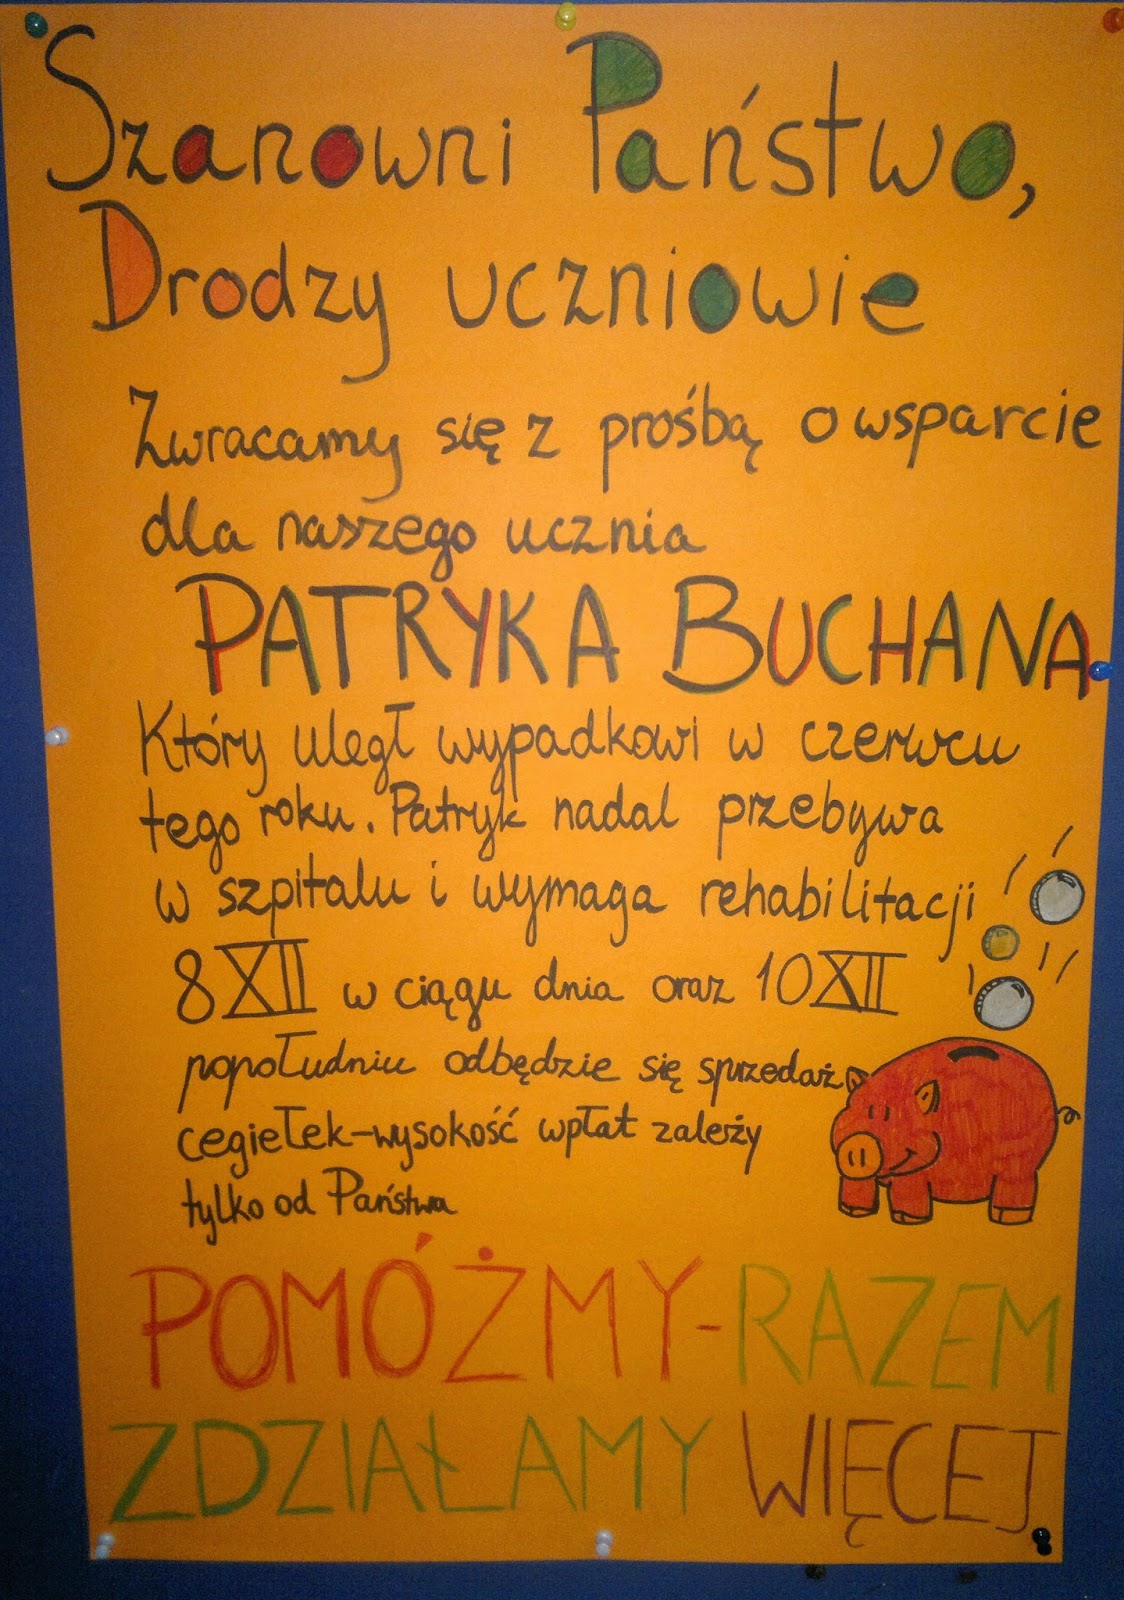 Szanowni Państwo,
Drodzy uczniowie
Zwracamy się z prośbą o wsparcie
dla naszego ucznia
PATRYKA BUCHANA
Który uległ wypadkowi w czerwcu
tego roku. Patryk nadal przebywa
w szpitalu i wymaga rehabilitacji
8 XII w ciągu dnia oraz 10 XII
popołudniu odbędzie się sprzedaż
cegiełek-wysokość wpłat zależy
tylko od Państwa
POMÓŻMY-RAZEM
ZDZIAŁAMY WIĘCEJ